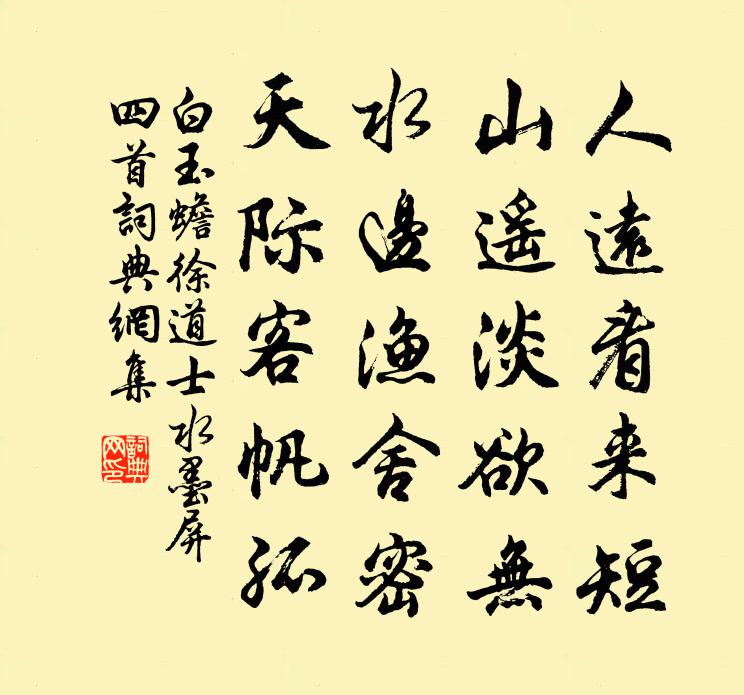 人遠看来短
山遥淡欲無
水邊漁舍密
天际客帆孤
白玉蟾徐道士水墨屏
四首詞典網集
詞典
网印